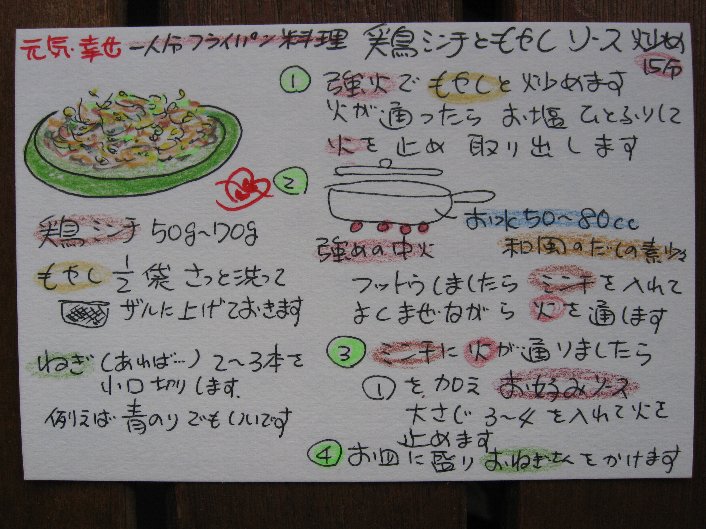 元気・幸せ 一人分フライパン料理 鶏ミンチともやし ソース炒め
15分
鶏ミンチ 50g～70g
もやし 1/2 袋 さっと洗って
ザルに上げておきます
ねぎ (あれば…) 2～3本を
小口切りします
例えば 青のりでもいいです
① 強火で もやしと 炒めます
火が通ったら お塩 ひとふりして
火を止め 取り出します
②
お水50～80cc
強めの中火 和風のだしの素少々
フットうしましたら ミンチを入れて
よくまぜながら 火を通します
③ ミンチに火が通りましたら
①を加え お好みソース
大さじ 3～4 を入れて火を
止めます
④ お皿に盛り おねぎさんをかけます